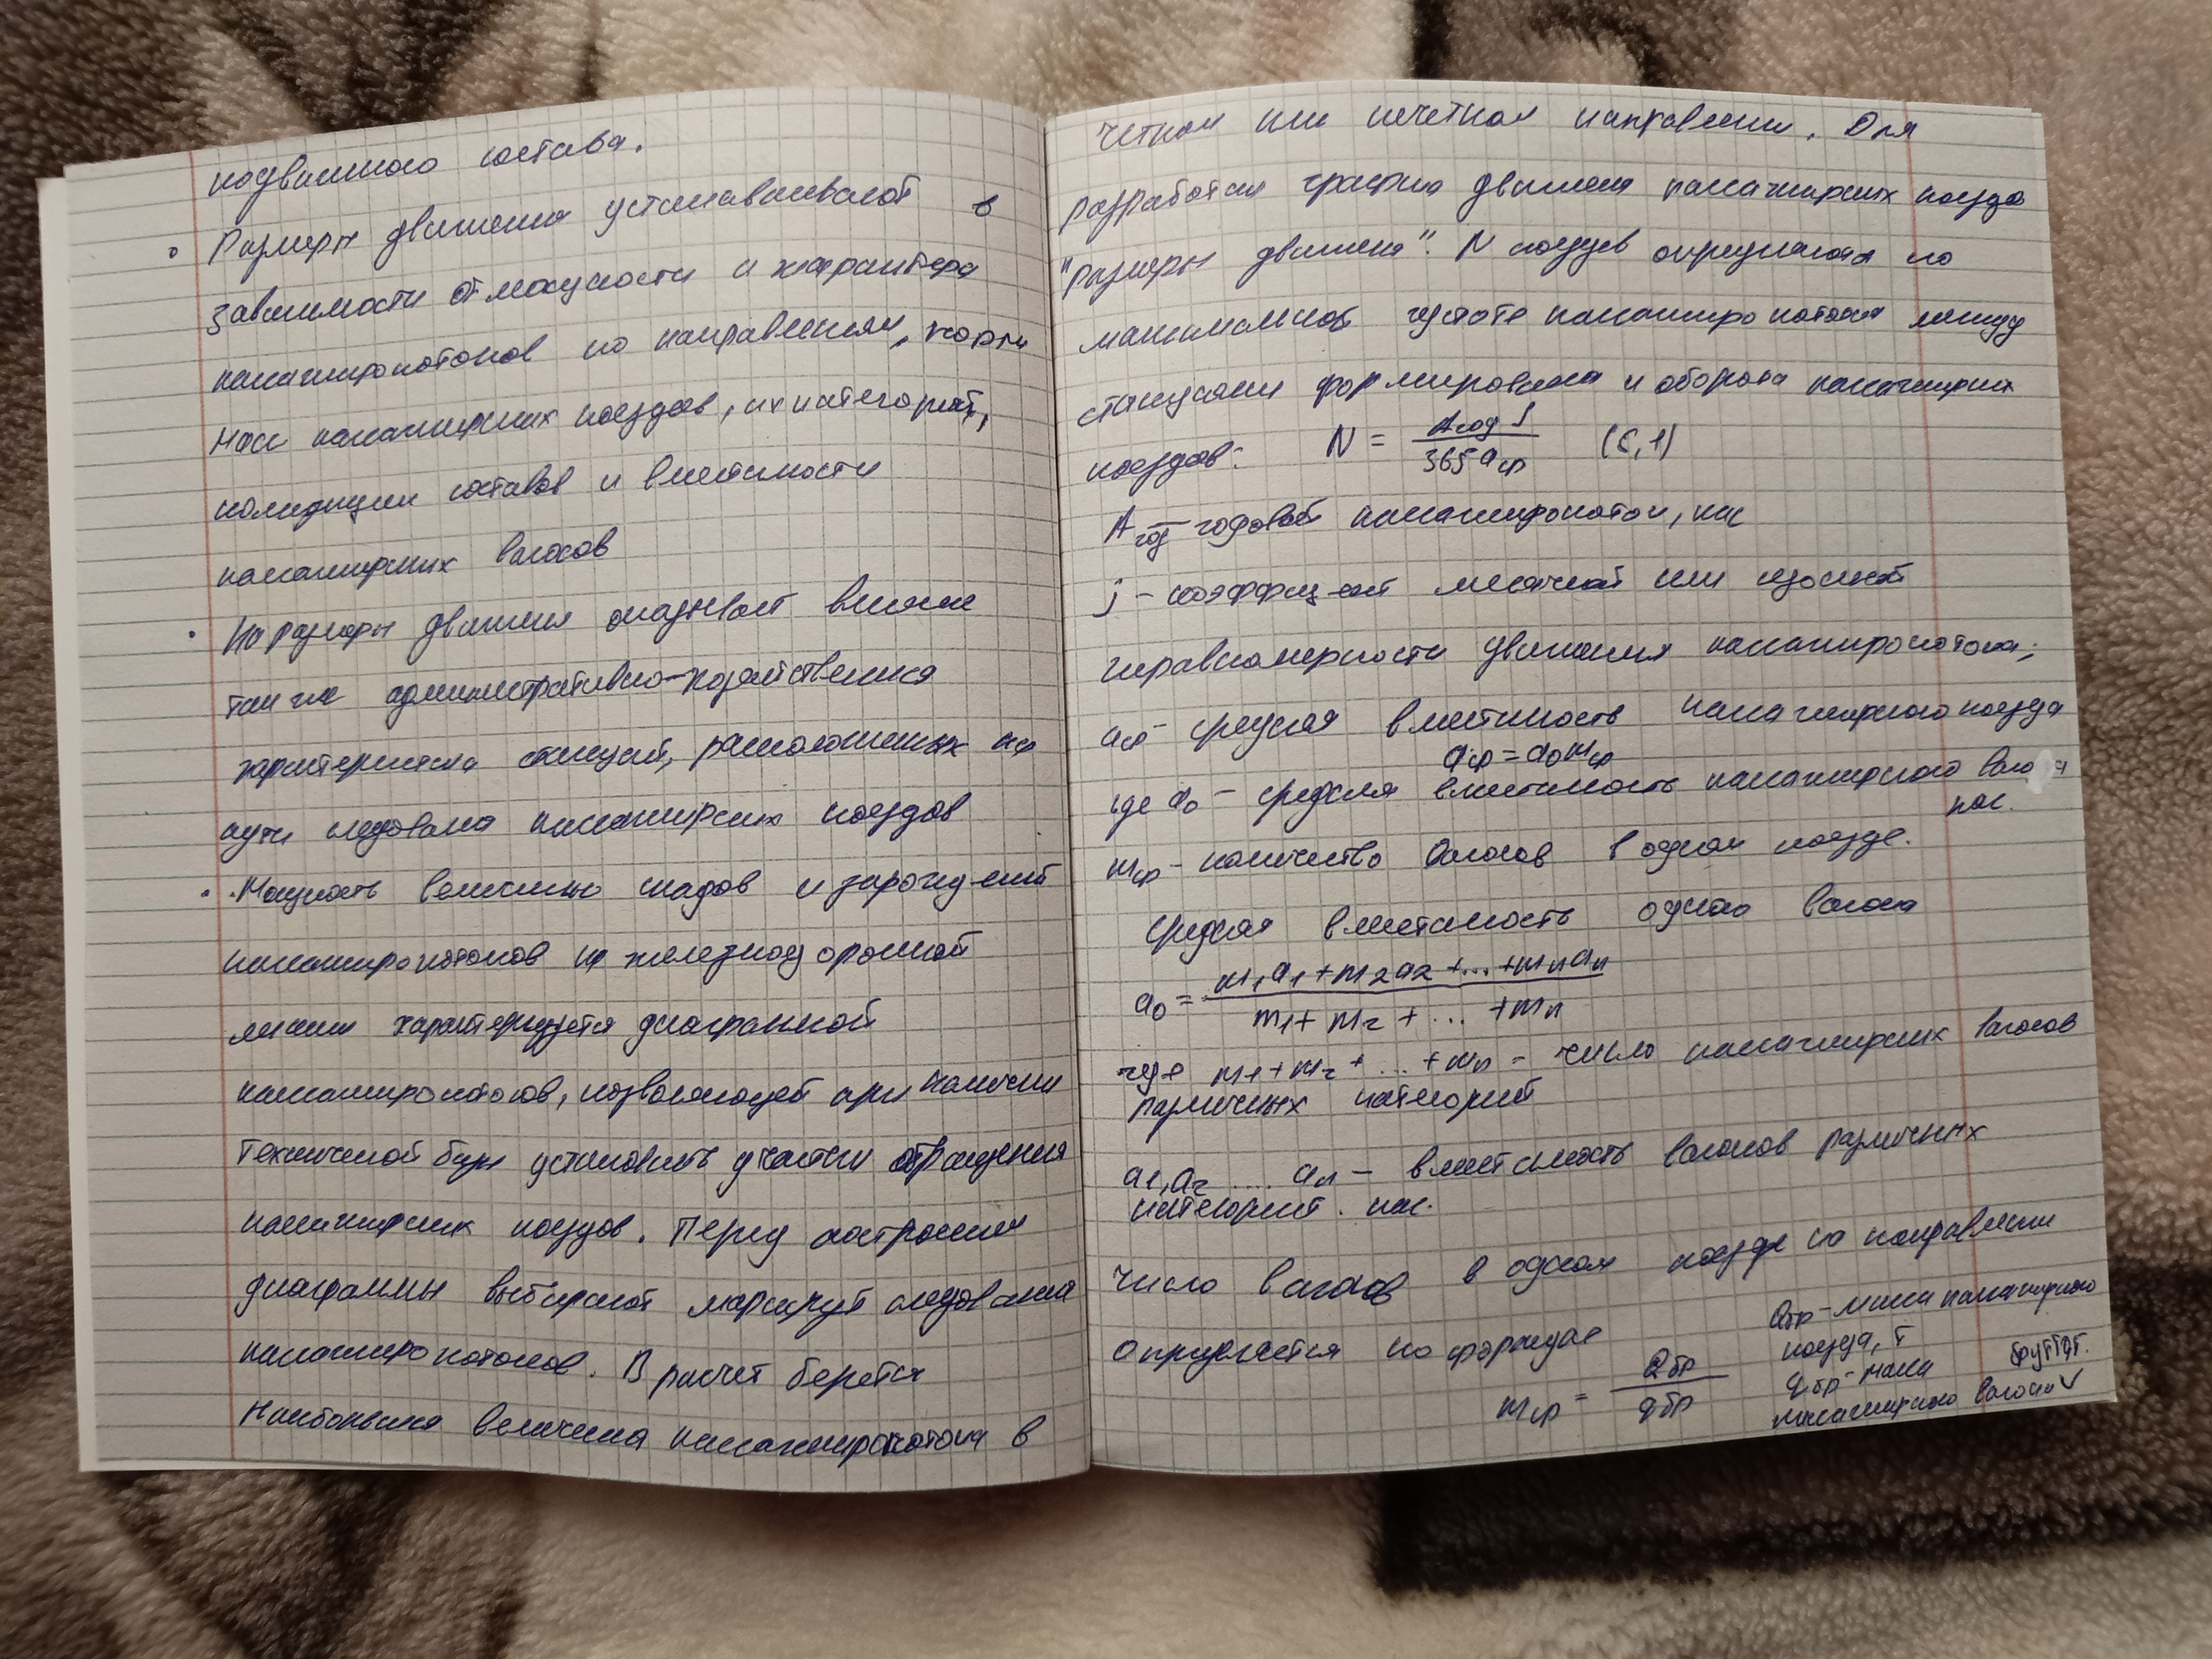 подвижного состава.
Размеры движения устанавливают в
зависимости от мощности и характера
пассажиропотоков по направлениям, норм
масс пассажирских поездов, их категорий,
композиции составов и вместимости
пассажирских вагонов
На размеры движения оказывает влияние
также административно-хозяйственная
характеристика станций, расположенных на
пути следования пассажирских поездов
Мощность величины и зарождений
пассажиропотоков на железнодорожной
линии характеризуется диаграммой
пассажиропотоков, позволяющей при наличии
технической базы установить участки обращения
пассажирских поездов. Перед построением
диаграммы выбирают маршрут следования
пассажиропотоков. В расчет берется
наибольшая величина пассажиропотока в
четном или нечетном направлении. Для
разработки графика движения пассажирских поездов
"размеры движения". N поездов определяются по
максимальной густоте пассажиропотока между
станциями формирования и оборота пассажирских
поездов: N = Aгод J / 365 aср (6,1)
Aгод - годовой пассажиропоток, пас
j - коэффициент месячной или сезонной
неравномерности движения пассажиропотока;
aср - средняя вместимость пассажирского поезда
aср = a0 mср
где a0 - средняя вместимость пассажирского вагона
пас.
mср - количество вагонов в одном поезде.
средняя вместимость одного вагона
a0 = m1a1 + m2a2 + ... + mnan / m1 + m2 + ... + mn
где m1 + m2 + ... + mn - число пассажирских вагонов
различных категорий
a1, a2 .... an - вместимость вагонов различных
категорий. пас.
Число вагонов в одном поезде по направлению
определяется по формуле
mср = Qбр / qбр
Qбр - масса пассажирского
поезда, т
qбр - масса брутто т.
пассажирского вагона